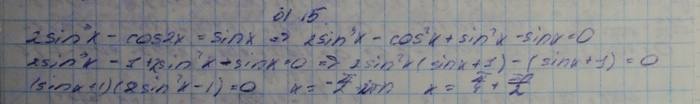 01.15
2sin³x - cos2x = sinx => 2sin³x - cos²x + sin²x - sinx = 0
2sin³x - 1 + 2sin²x - sinx = 0 => 2sin²x(sinx + 1) - (sinx + 1) = 0
(sinx + 1)(2sin²x - 1) = 0 x = -π/2 + 2πn x = π/4 + πn/2